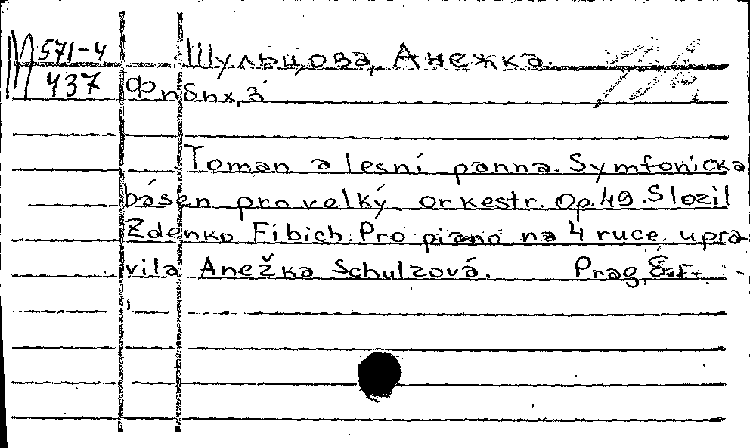 М 571-4 Шульцова, Анежка.
437 Фибих, З
Toman a lesní panna. Symfonicka
básen pro velký orkestr. Op. 49. Slozil
Zdenko Fibich. Pro piano na 4 ruce upra
vila Anežka Schulzová. Prag,